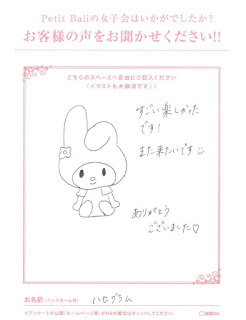 Petit Baliの女子会はいかがでしたか?
お客様の声をお聞かせください!!
こちらのスペースへ自由にご記入ください
(イラストも大歓迎です)
すごい楽しかった
です!
また来たいです
ありがとう
ございました♡
お名前(ニックネーム可)
ハセグラム
※アンケートの公開(ホームページ等)がNGの場合はチェックしてください。
□掲載NG